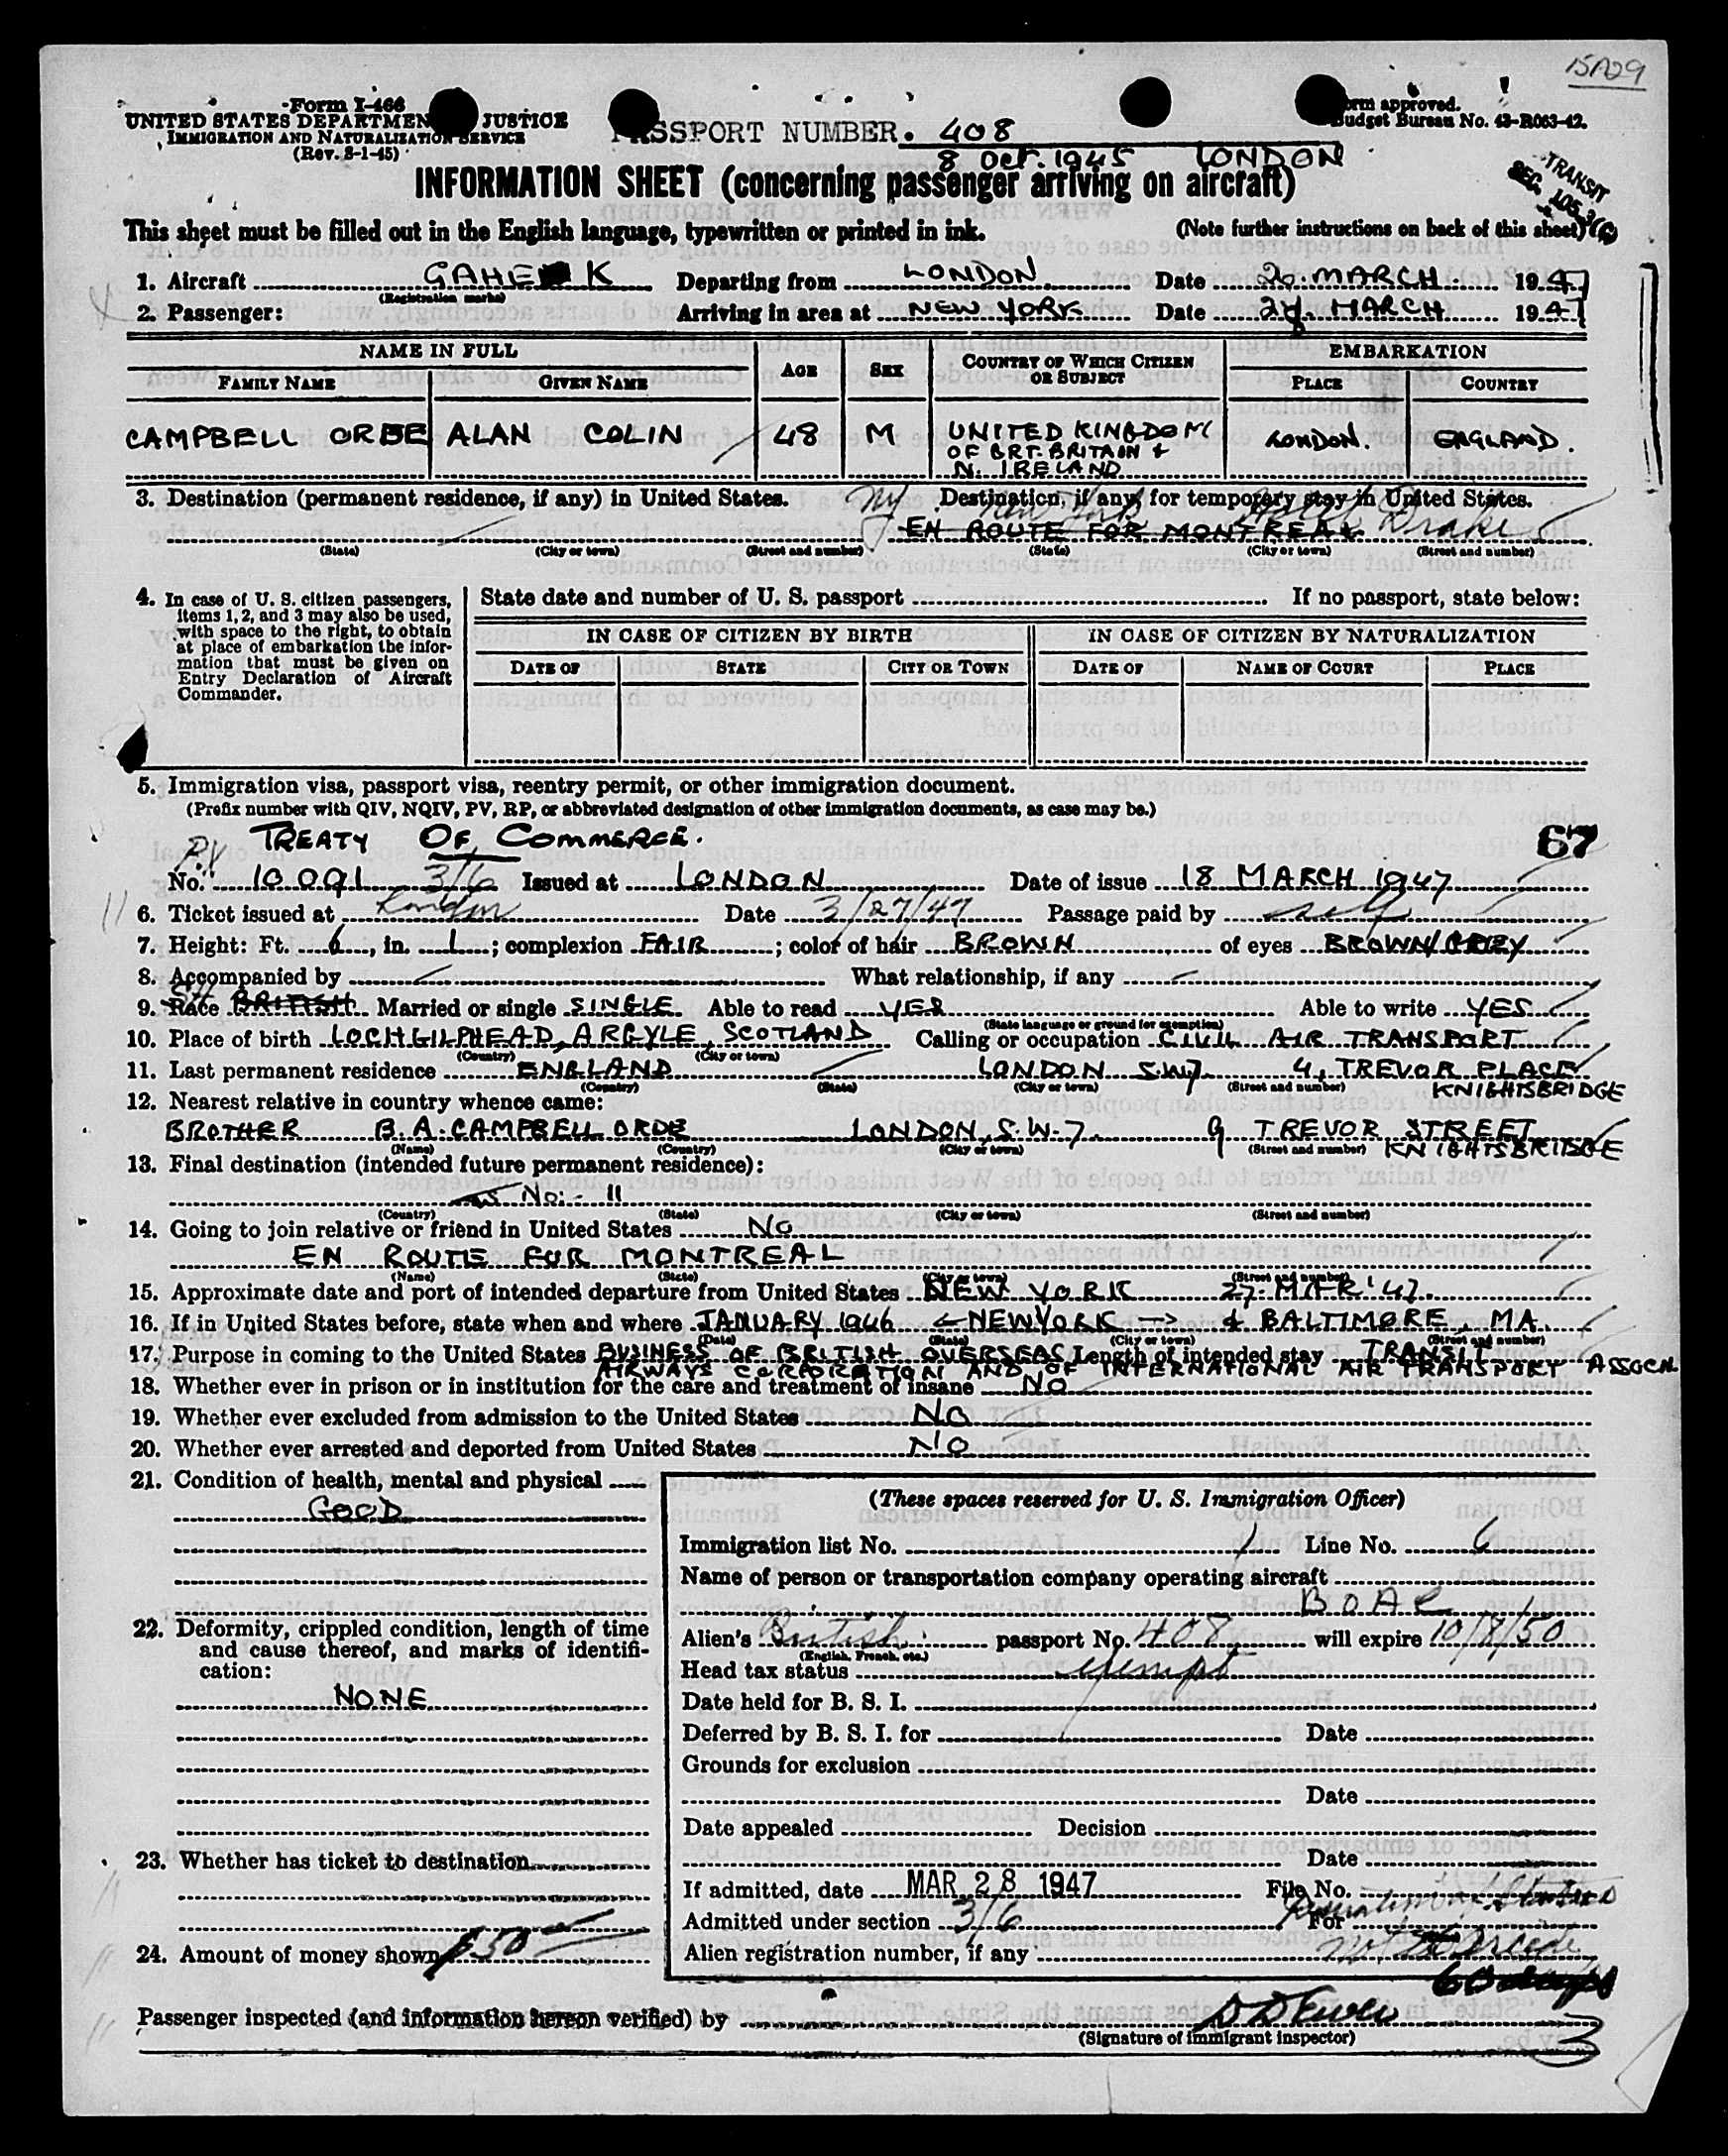 15A29
Form I-466
UNITED STATES DEPARTMENT JUSTICE
IMMIGRATION AND NATURALIZATION SERVICE
(Rev. 8-1-45)
PASSPORT NUMBER. 408
8 OCT. 1945 LONDON
Form approved.
Budget Bureau No. 43-R063-42.
INFORMATION SHEET (concerning passenger arriving on aircraft)
TRANSIT
SEC. 105.3
This sheet must be filled out in the English language, typewritten or printed in ink. (Note further instructions on back of this sheet)
1. Aircraft GAHE K Departing from LONDON. Date 26. MARCH. 1947
(Registration marks)
2. Passenger: Arriving in area at NEW YORK Date 27. MARCH 1947
NAME IN FULL AGE SEX COUNTRY OF WHICH CITIZEN OR SUBJECT EMBARKATION
FAMILY NAME GIVEN NAME PLACE COUNTRY
CAMPBELL ORDE ALAN COLIN 48 M UNITED KINGDOM LONDON. ENGLAND.
OF GRT. BRITAIN &
N. IRELAND
3. Destination (permanent residence, if any) in United States. NY Destination, if any, for temporary stay in United States.
New York Hotel Drake
EN ROUTE FOR MONTREAL
(State) (City or town) (Street and number) (State) (City or town) (Street and number)
4. In case of U. S. citizen passengers, items 1, 2, and 3 may also be used, with space to the right, to obtain at place of embarkation the information that must be given on Entry Declaration of Aircraft Commander.
State date and number of U. S. passport If no passport, state below:
IN CASE OF CITIZEN BY BIRTH IN CASE OF CITIZEN BY NATURALIZATION
DATE OF STATE CITY OR TOWN DATE OF NAME OF COURT PLACE
5. Immigration visa, passport visa, reentry permit, or other immigration document.
(Prefix number with QIV, NQIV, PV, RP, or abbreviated designation of other immigration documents, as case may be.)
PV TREATY OF COMMERCE. 67
No. 10091 3/6 Issued at LONDON Date of issue 18 MARCH 1947
6. Ticket issued at London Date 3/27/47 Passage paid by self
7. Height: Ft. 6, in. 1; complexion FAIR; color of hair BROWN of eyes BROWN/GREY
8. Accompanied by What relationship, if any
9. Race BRITISH Married or single SINGLE Able to read YES Able to write YES
(State language or ground for exemption)
10. Place of birth LOCHGILPHEAD, ARGYLE, SCOTLAND Calling or occupation CIVIL AIR TRANSPORT
(Country) (City or town)
11. Last permanent residence ENGLAND LONDON S.W.7. 4, TREVOR PLACE
(Country) (State) (City or town) (Street and number) KNIGHTSBRIDGE
12. Nearest relative in country whence came:
BROTHER B. A. CAMPBELL ORDE LONDON, S.W.7. 9 TREVOR STREET
(Name) (Country) (City or town) (Street and number) KNIGHTSBRIDGE
13. Final destination (intended future permanent residence):
as No:- 11
(Country) (State) (City or town) (Street and number)
14. Going to join relative or friend in United States NO
EN ROUTE FOR MONTREAL
(Name) (State) (City or town) (Street and number)
15. Approximate date and port of intended departure from United States NEW YORK 27. MAR '47.
16. If in United States before, state when and where JANUARY 1946 NEW YORK & BALTIMORE, MA.
(Date) (State) (City or town) (Street and number)
17. Purpose in coming to the United States BUSINESS OF BRITISH OVERSEAS Length of intended stay TRANSIT
AIRWAYS CORPORATION AND OF INTERNATIONAL AIR TRANSPORT ASSOCN
18. Whether ever in prison or in institution for the care and treatment of insane NO
19. Whether ever excluded from admission to the United States NO
20. Whether ever arrested and deported from United States NO
21. Condition of health, mental and physical
GOOD
22. Deformity, crippled condition, length of time and cause thereof, and marks of identification:
NONE
23. Whether has ticket to destination
24. Amount of money shown $50
(These spaces reserved for U. S. Immigration Officer)
Immigration list No. 1 Line No. 6
Name of person or transportation company operating aircraft
BOAC
Alien's British passport No. 408 will expire 10/8/50
(English, French, etc.)
Head tax status exempt
Date held for B. S. I.
Deferred by B. S. I. for Date
Grounds for exclusion
Date
Date appealed Decision
Date
If admitted, date MAR 28 1947 File No.
Admitted under section 3/6 For
Alien registration number, if any not to exceed
60 days
Passenger inspected (and information hereon verified) by
(Signature of immigrant inspector)
3